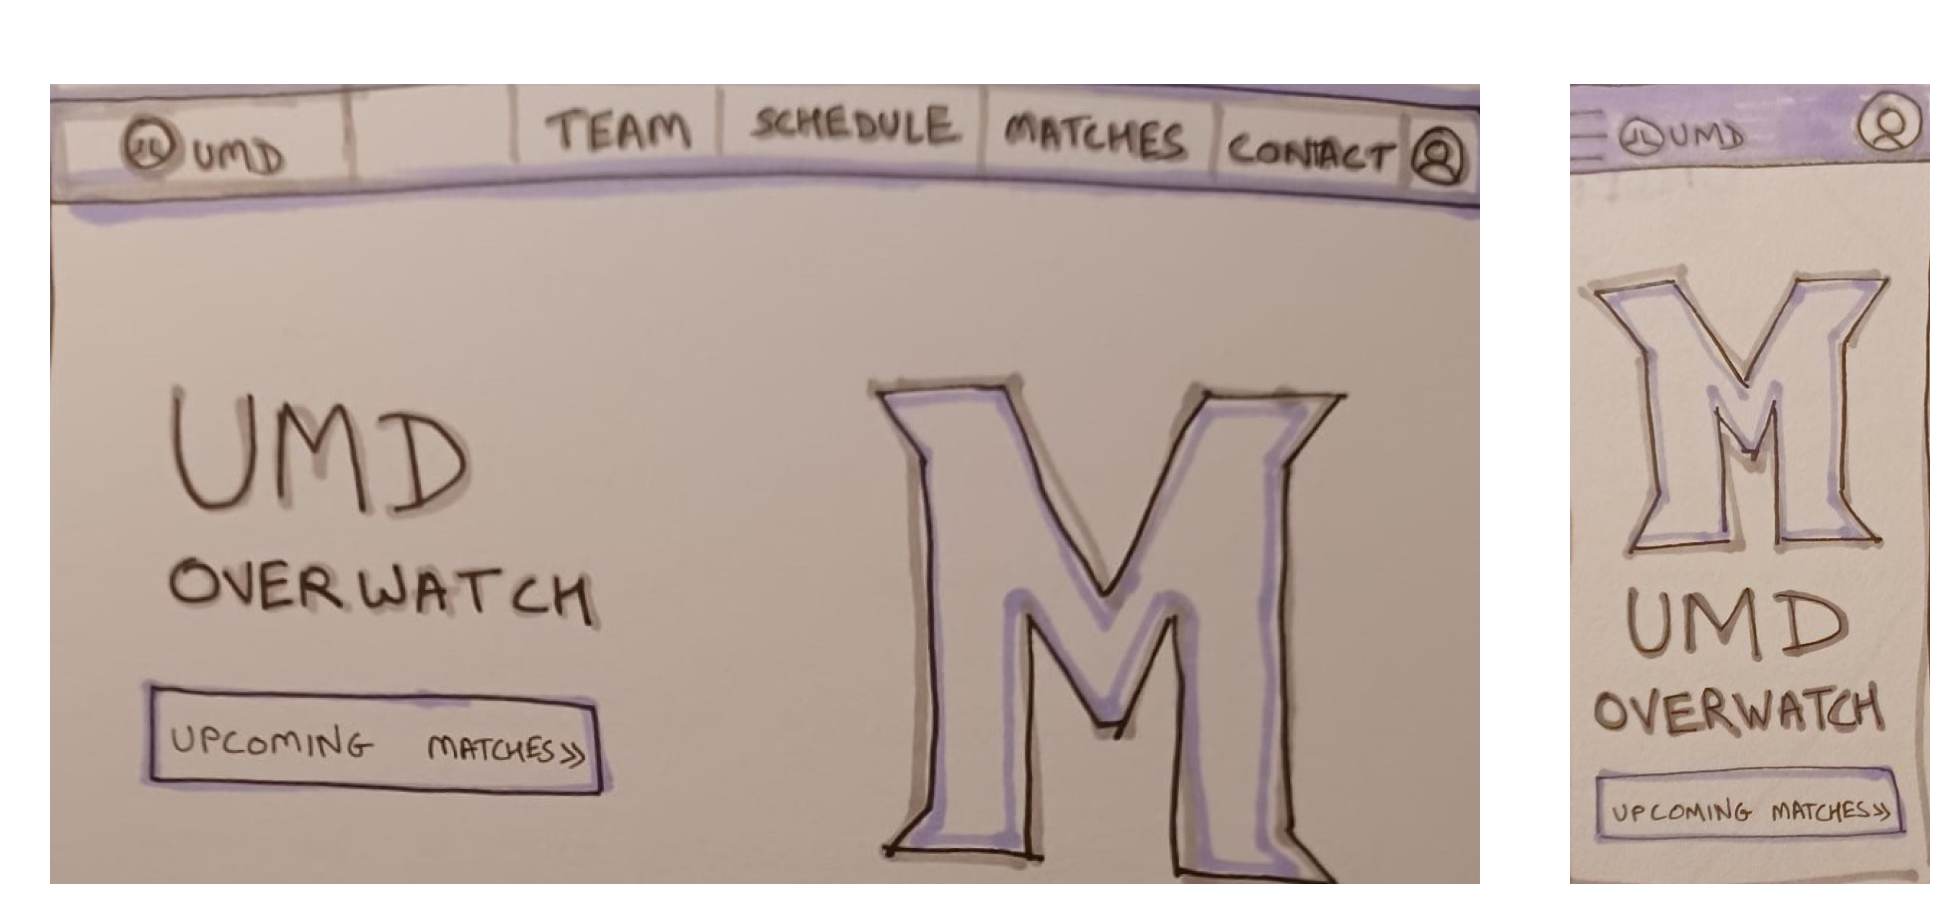 UMD TEAM SCHEDULE MATCHES CONTACT
UMD
OVERWATCH
UPCOMING MATCHES»
UMD
M
UMD
OVERWATCH
UPCOMING MATCHES»
M